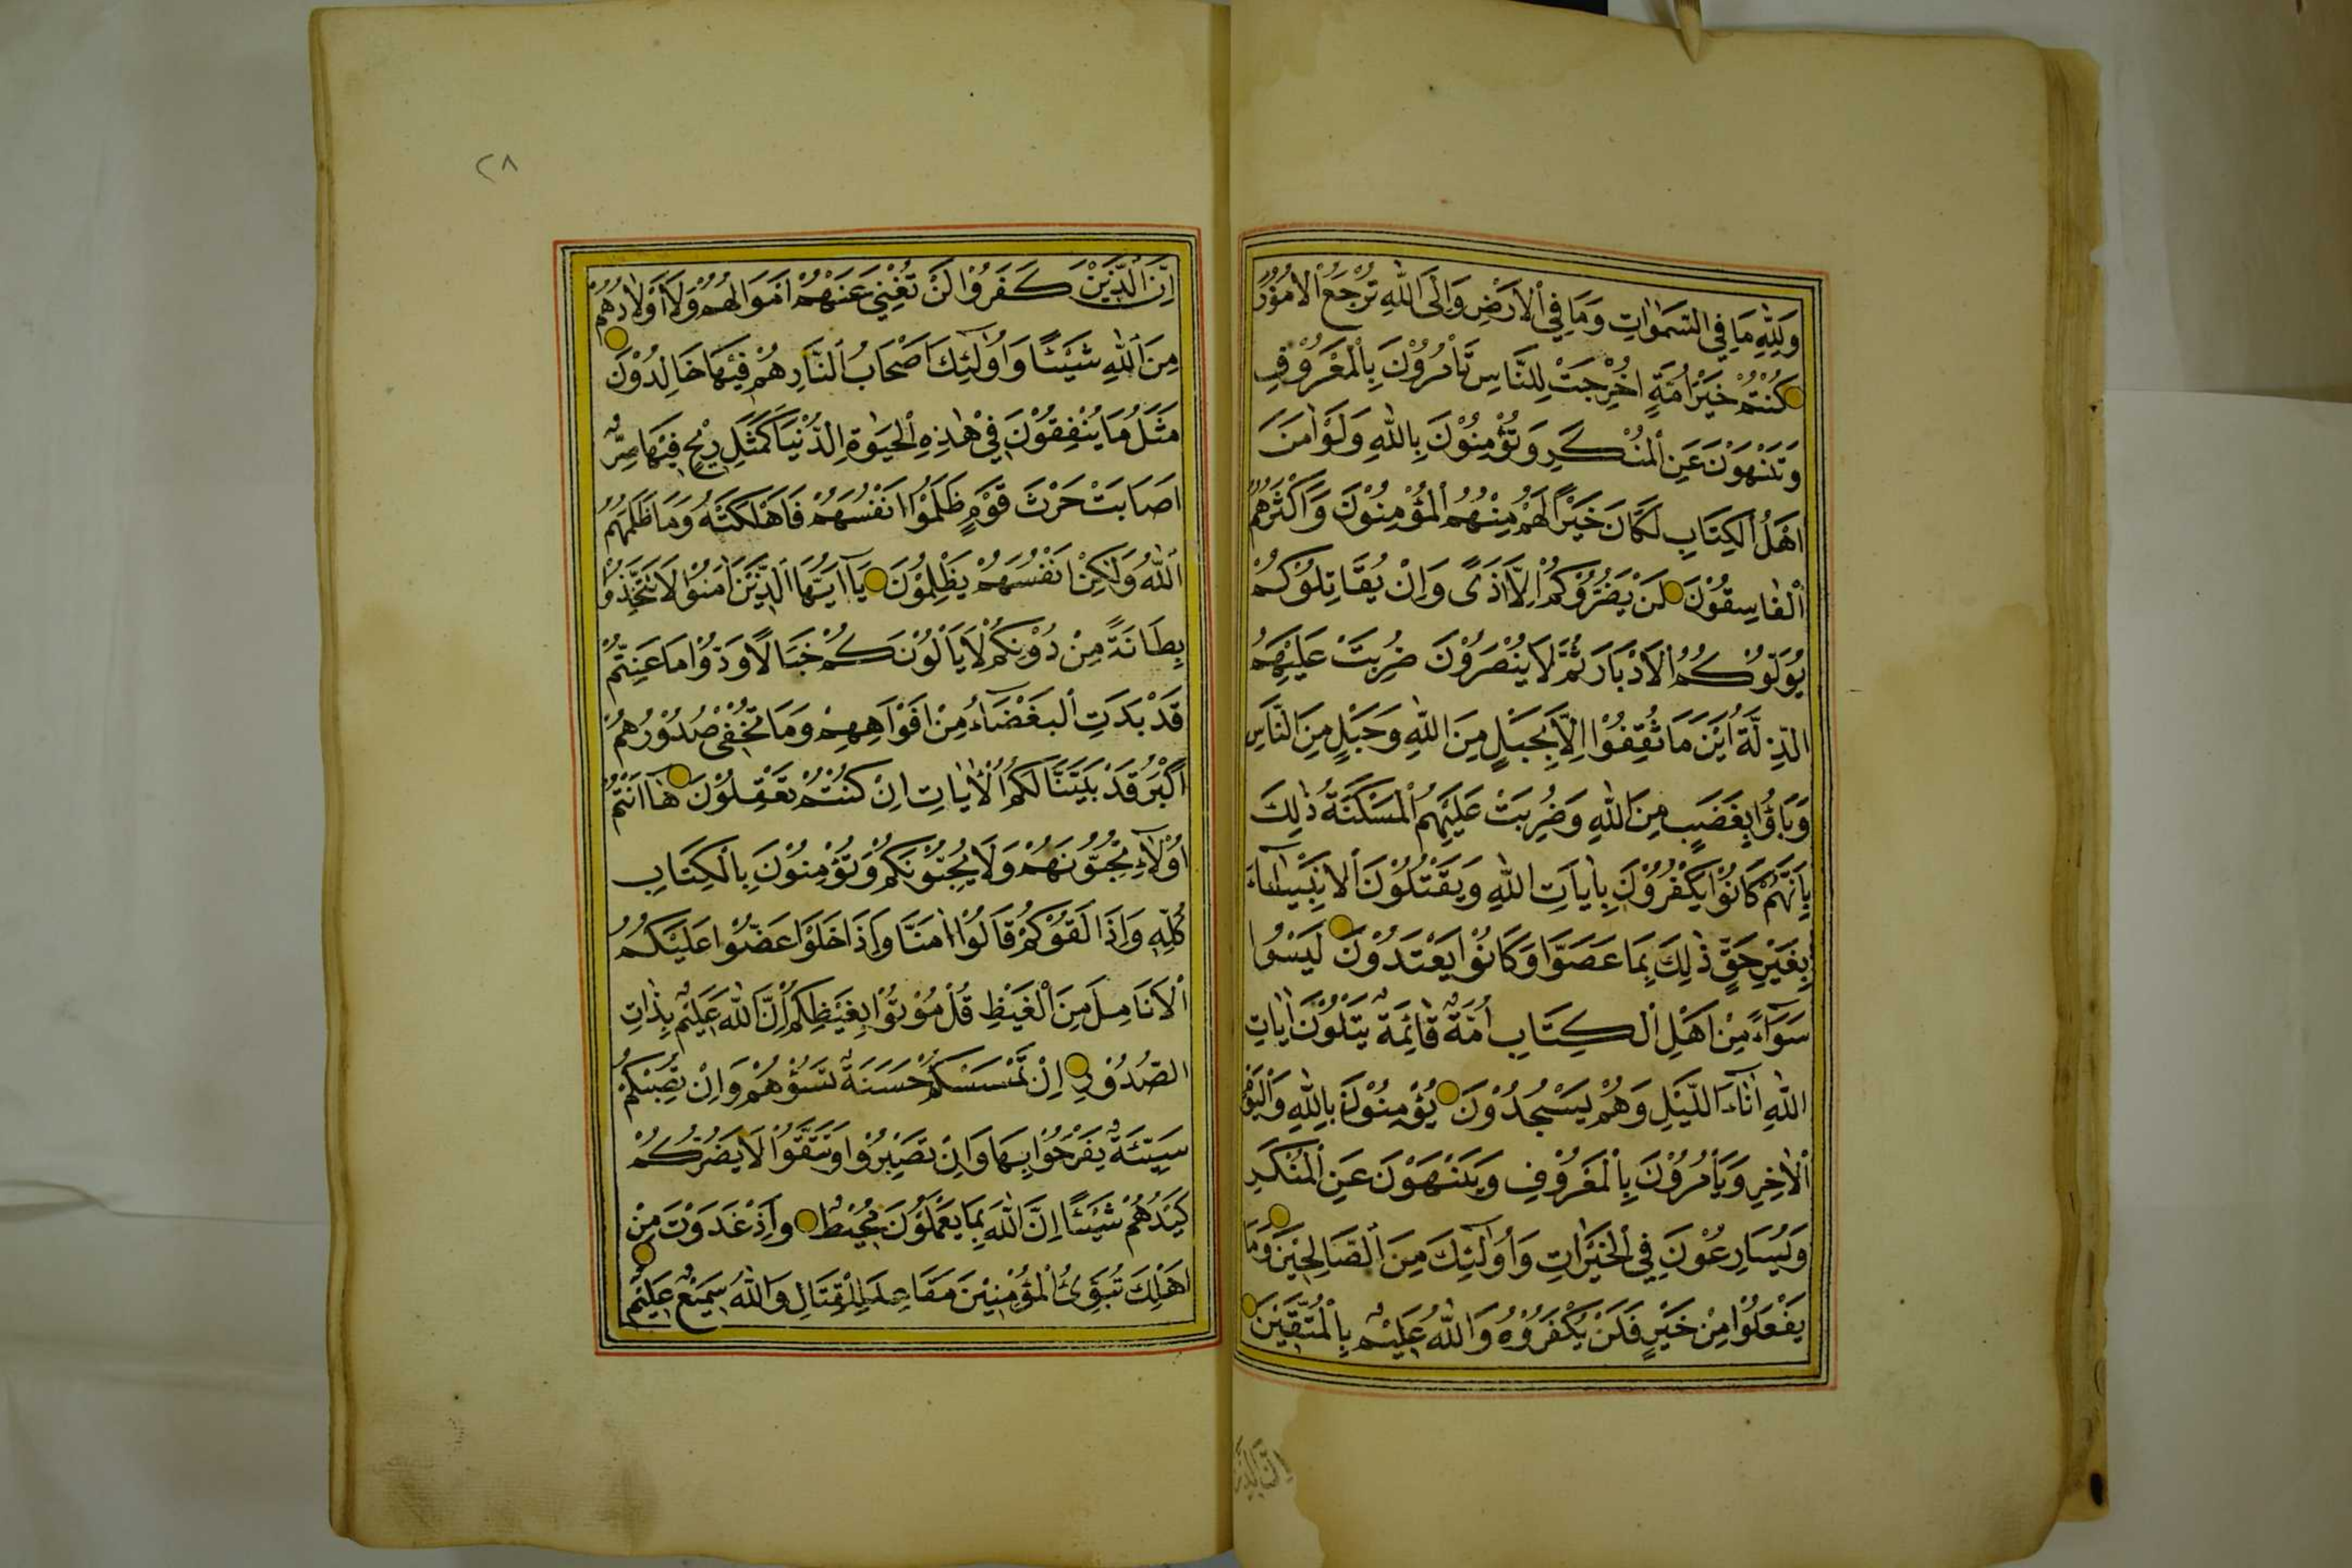 وَلِلّٰهِ مَا فِي السَّمٰوَاتِ وَمَا فِي الْاَرْضِ وَاِلَى اللّٰهِ تُرْجَعُ الْاُمُوْرُ
كُنْتُمْ خَيْرَ اُمَّةٍ اُخْرِجَتْ لِلنَّاسِ تَاْمُرُوْنَ بِالْمَعْرُوْفِ
وَتَنْهَوْنَ عَنِ الْمُنْكَرِ وَتُؤْمِنُوْنَ بِاللّٰهِ وَلَوْ اٰمَنَ
اَهْلُ الْكِتَابِ لَكَانَ خَيْرًا لَهُمْ مِنْهُمُ الْمُؤْمِنُوْنَ وَاَكْثَرُهُمُ
الْفَاسِقُوْنَ لَنْ يَضُرُّوْكُمْ اِلَّا اَذًى وَاِنْ يُقَاتِلُوْكُمْ
يُوَلُّوْكُمُ الْاَدْبَارَ ثُمَّ لَا يُنْصَرُوْنَ ضُرِبَتْ عَلَيْهِمُ
الذِّلَّةُ اَيْنَ مَا ثُقِفُوْا اِلَّا بِحَبْلٍ مِنَ اللّٰهِ وَحَبْلٍ مِنَ النَّاسِ
وَبَاؤُا بِغَضَبٍ مِنَ اللّٰهِ وَضُرِبَتْ عَلَيْهِمُ الْمَسْكَنَةُ ذٰلِكَ
بِاَنَّهُمْ كَانُوْا يَكْفُرُوْنَ بِاٰيَاتِ اللّٰهِ وَيَقْتُلُوْنَ الْاَنْبِيَاءَ
بِغَيْرِ حَقٍّ ذٰلِكَ بِمَا عَصَوْا وَكَانُوْا يَعْتَدُوْنَ لَيْسُوا
سَوَآءً مِنْ اَهْلِ الْكِتَابِ اُمَّةٌ قَائِمَةٌ يَتْلُوْنَ اٰيَاتِ
اللّٰهِ اٰنَآءَ اللَّيْلِ وَهُمْ يَسْجُدُوْنَ يُؤْمِنُوْنَ بِاللّٰهِ وَالْيَوْمِ
الْاٰخِرِ وَيَاْمُرُوْنَ بِالْمَعْرُوْفِ وَيَنْهَوْنَ عَنِ الْمُنْكَرِ
وَيُسَارِعُوْنَ فِي الْخَيْرَاتِ وَاُولٰٓئِكَ مِنَ الصَّالِحِيْنَ وَمَا
يَفْعَلُوْا مِنْ خَيْرٍ فَلَنْ يُكْفَرُوْهُ وَاللّٰهُ عَلِيْمٌ بِالْمُتَّقِيْنَ
اِنَّ الَّذِيْنَ
٢٨
اِنَّ الَّذِيْنَ كَفَرُوْا لَنْ تُغْنِيَ عَنْهُمْ اَمْوَالُهُمْ وَلَا اَوْلَادُهُمْ
مِنَ اللّٰهِ شَيْئًا وَاُولٰٓئِكَ اَصْحَابُ النَّارِ هُمْ فِيْهَا خَالِدُوْنَ
مَثَلُ مَا يُنْفِقُوْنَ فِيْ هٰذِهِ الْحَيٰوةِ الدُّنْيَا كَمَثَلِ رِيْحٍ فِيْهَا صِرٌّ
اَصَابَتْ حَرْثَ قَوْمٍ ظَلَمُوْا اَنْفُسَهُمْ فَاَهْلَكَتْهُ وَمَا ظَلَمَهُمُ
اللّٰهُ وَلٰكِنْ اَنْفُسَهُمْ يَظْلِمُوْنَ يَآ اَيُّهَا الَّذِيْنَ اٰمَنُوْا لَا تَتَّخِذُوْا
بِطَانَةً مِنْ دُوْنِكُمْ لَا يَاْلُوْنَكُمْ خَبَالًا وَدُّوْا مَا عَنِتُّمْ
قَدْ بَدَتِ الْبَغْضَآءُ مِنْ اَفْوَاهِهِمْ وَمَا تُخْفِيْ صُدُوْرُهُمْ
اَكْبَرُ قَدْ بَيَّنَّا لَكُمُ الْاٰيَاتِ اِنْ كُنْتُمْ تَعْقِلُوْنَ هَآ اَنْتُمْ
اُوْلَآءِ تُحِبُّوْنَهُمْ وَلَا يُحِبُّوْنَكُمْ وَتُؤْمِنُوْنَ بِالْكِتَابِ
كُلِّهِ وَاِذَا لَقُوْكُمْ قَالُوْا اٰمَنَّا وَاِذَا خَلَوْا عَضُّوْا عَلَيْكُمُ
الْاَنَامِلَ مِنَ الْغَيْظِ قُلْ مُوْتُوْا بِغَيْظِكُمْ اِنَّ اللّٰهَ عَلِيْمٌ بِذَاتِ
الصُّدُوْرِ اِنْ تَمْسَسْكُمْ حَسَنَةٌ تَسُؤْهُمْ وَاِنْ تُصِبْكُمْ
سَيِّئَةٌ يَفْرَحُوْا بِهَا وَاِنْ تَصْبِرُوْا وَتَتَّقُوْا لَا يَضُرُّكُمْ
كَيْدُهُمْ شَيْئًا اِنَّ اللّٰهَ بِمَا يَعْمَلُوْنَ مُحِيْطٌ وَاِذْ غَدَوْتَ مِنْ
اَهْلِكَ تُبَوِّئُ الْمُؤْمِنِيْنَ مَقَاعِدَ لِلْقِتَالِ وَاللّٰهُ سَمِيْعٌ عَلِيْمٌ